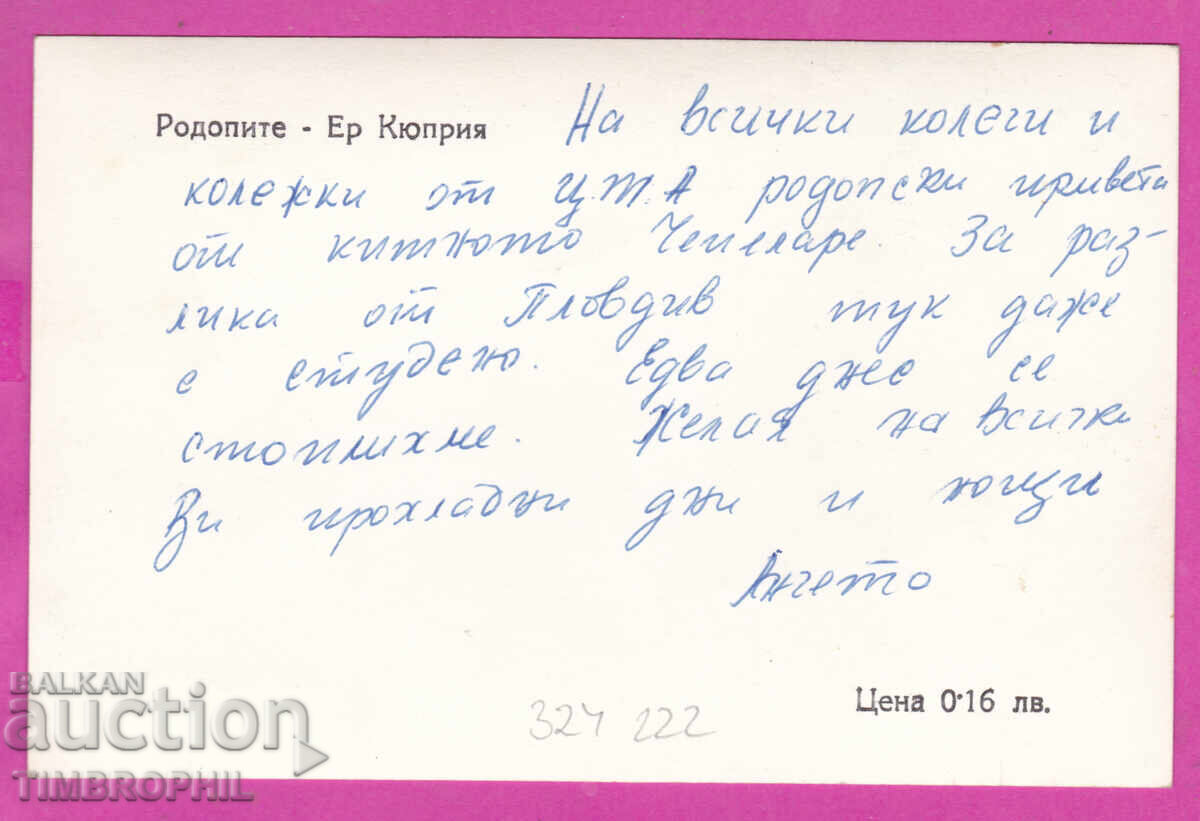 Родопите - Ер Кюприя
На всички колеги и
колежки от Ц.Ж.А родопски привети
от китното Чепеларе. За раз-
лика от Пловдив тук даже
е студено. Едва днес се
стоплихме. Желая на всички
Ви прохладни дни и нощи
Ангето
Цена 0·16 лв.
324 222
BALKAN
auction
TIMBROPHIL